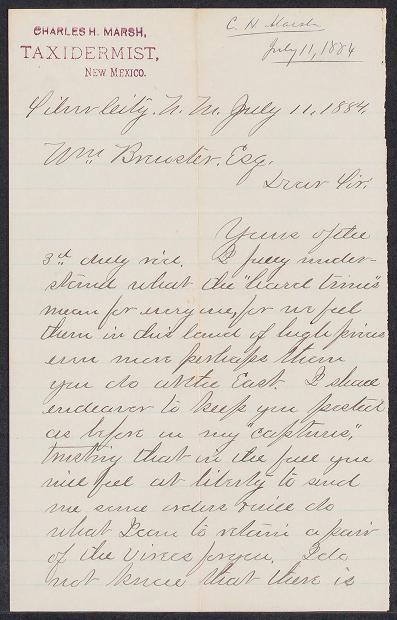 CHARLES H. MARSH,
TAXIDERMIST,
NEW MEXICO.
C. H Marsh
July 11, 1884
Silver City. N. M. July 11. 1884.
Wm Brewster, Esq.
Dear Sir:
Yours of the
3rd duly rec. I fully under-
stand what the "hard times"
mean for every one, for we feel
them in this land of high prices
even more perhaps than
you do at the East. I shall
endeavor to keep you posted
as before in my "captures",
trusting that in the fall you
will feel at liberty to send
me some orders will do
what I can to retain a pair
of the Vireos for you. I do
not know that there is